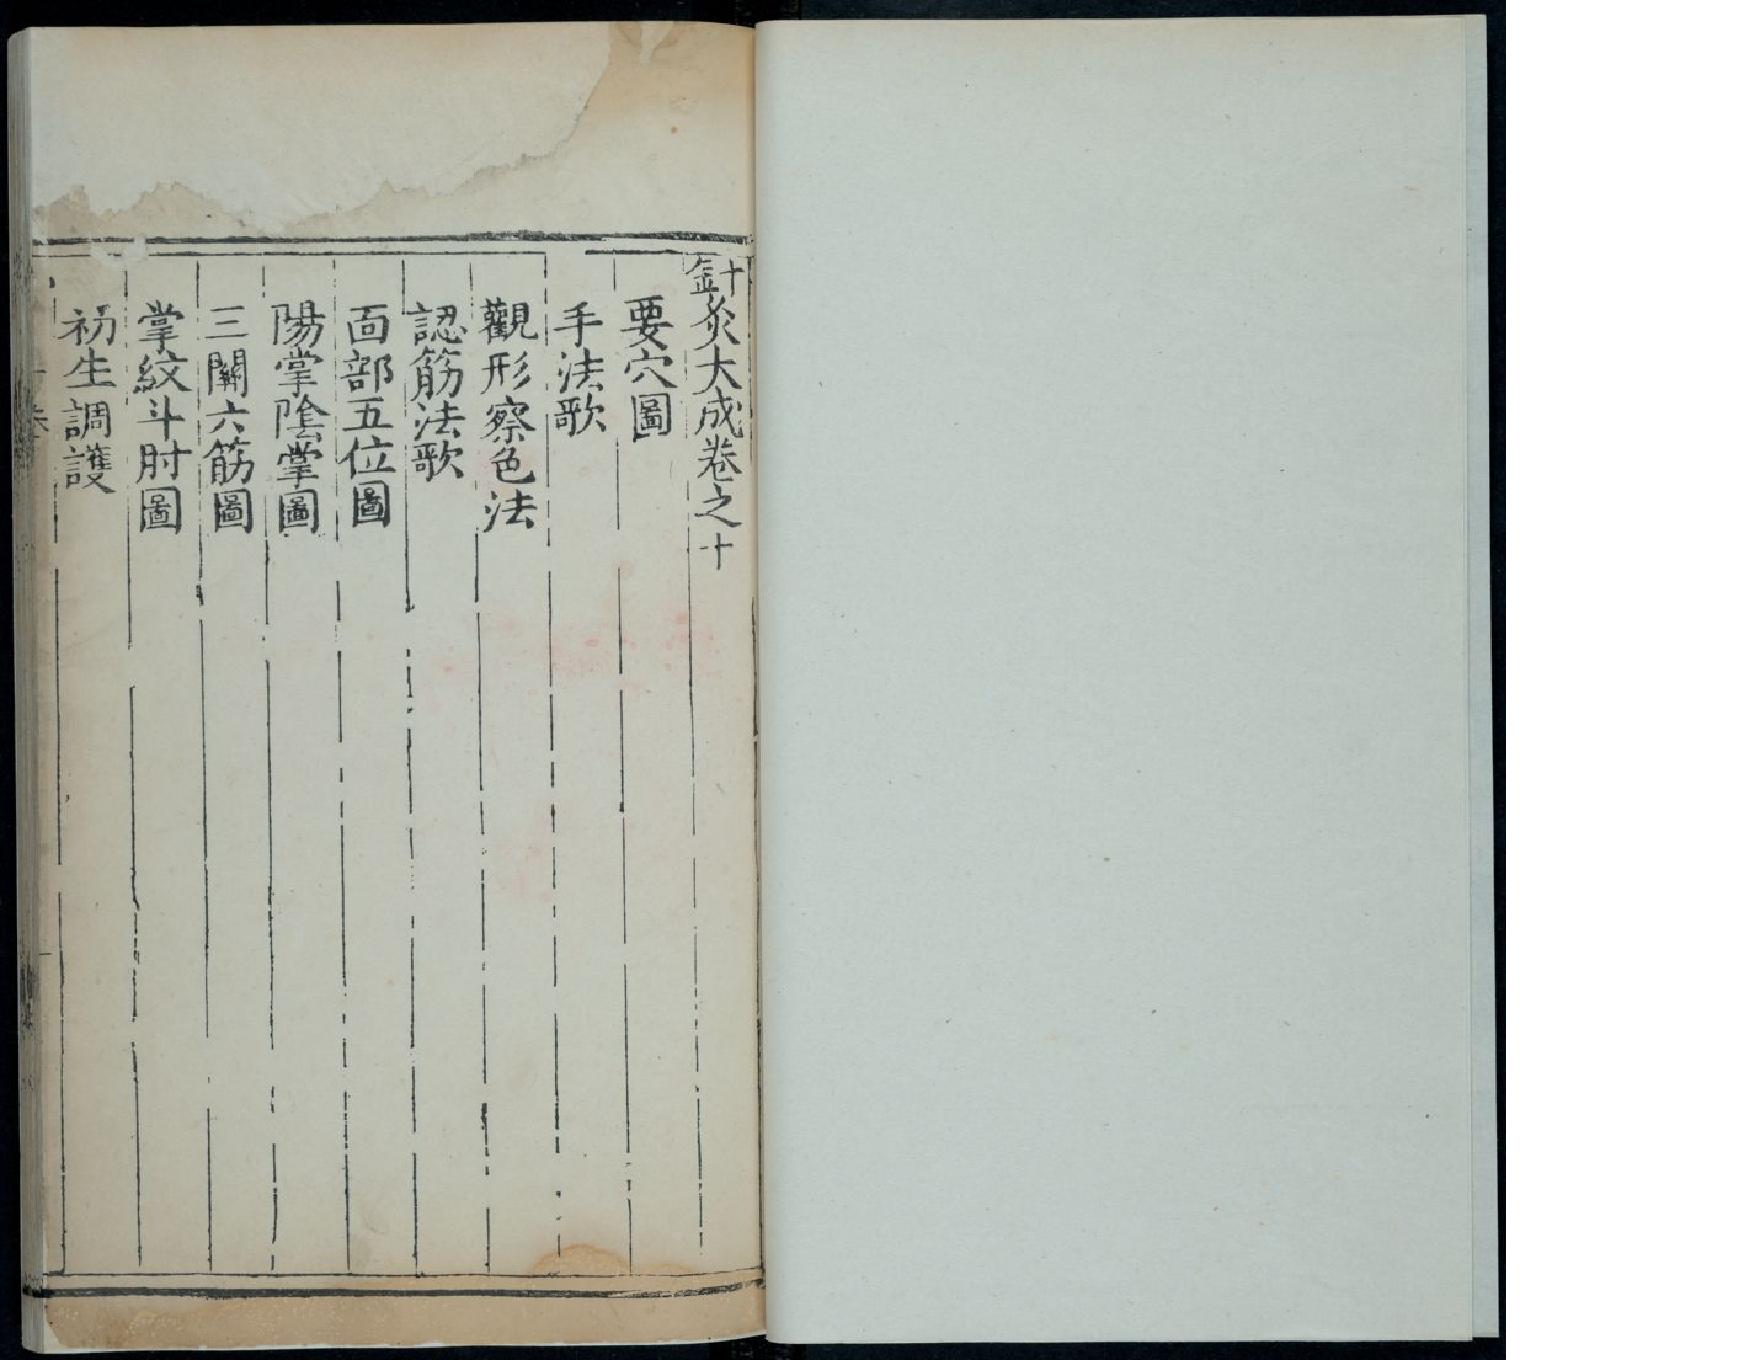 針灸大成卷之十
要穴圖
手法歌
觀形察色法
認筋法歌
面部五位圖
陽掌陰掌圖
三關六筋圖
掌紋斗肘圖
初生調護